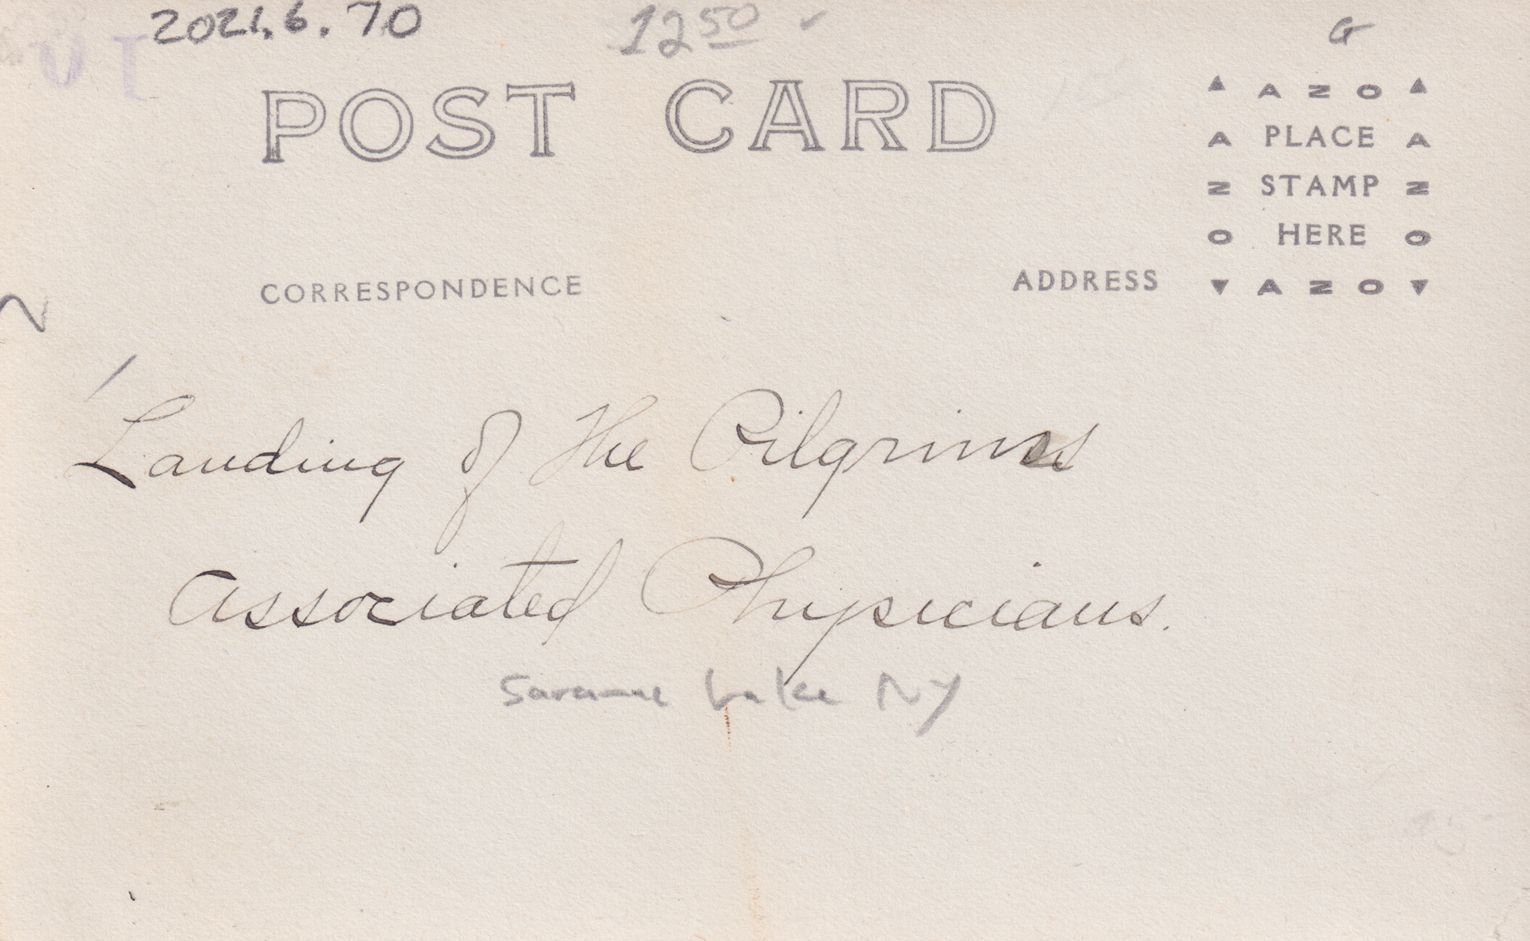 2021.6.70 12 50 G
POST CARD
▲ A Z O ▲
A PLACE A
Z STAMP Z
O HERE O
▼ A Z O ▼
CORRESPONDENCE ADDRESS
Landing of The Pilgrims
Associated Physicians.
Saranac Lake NY